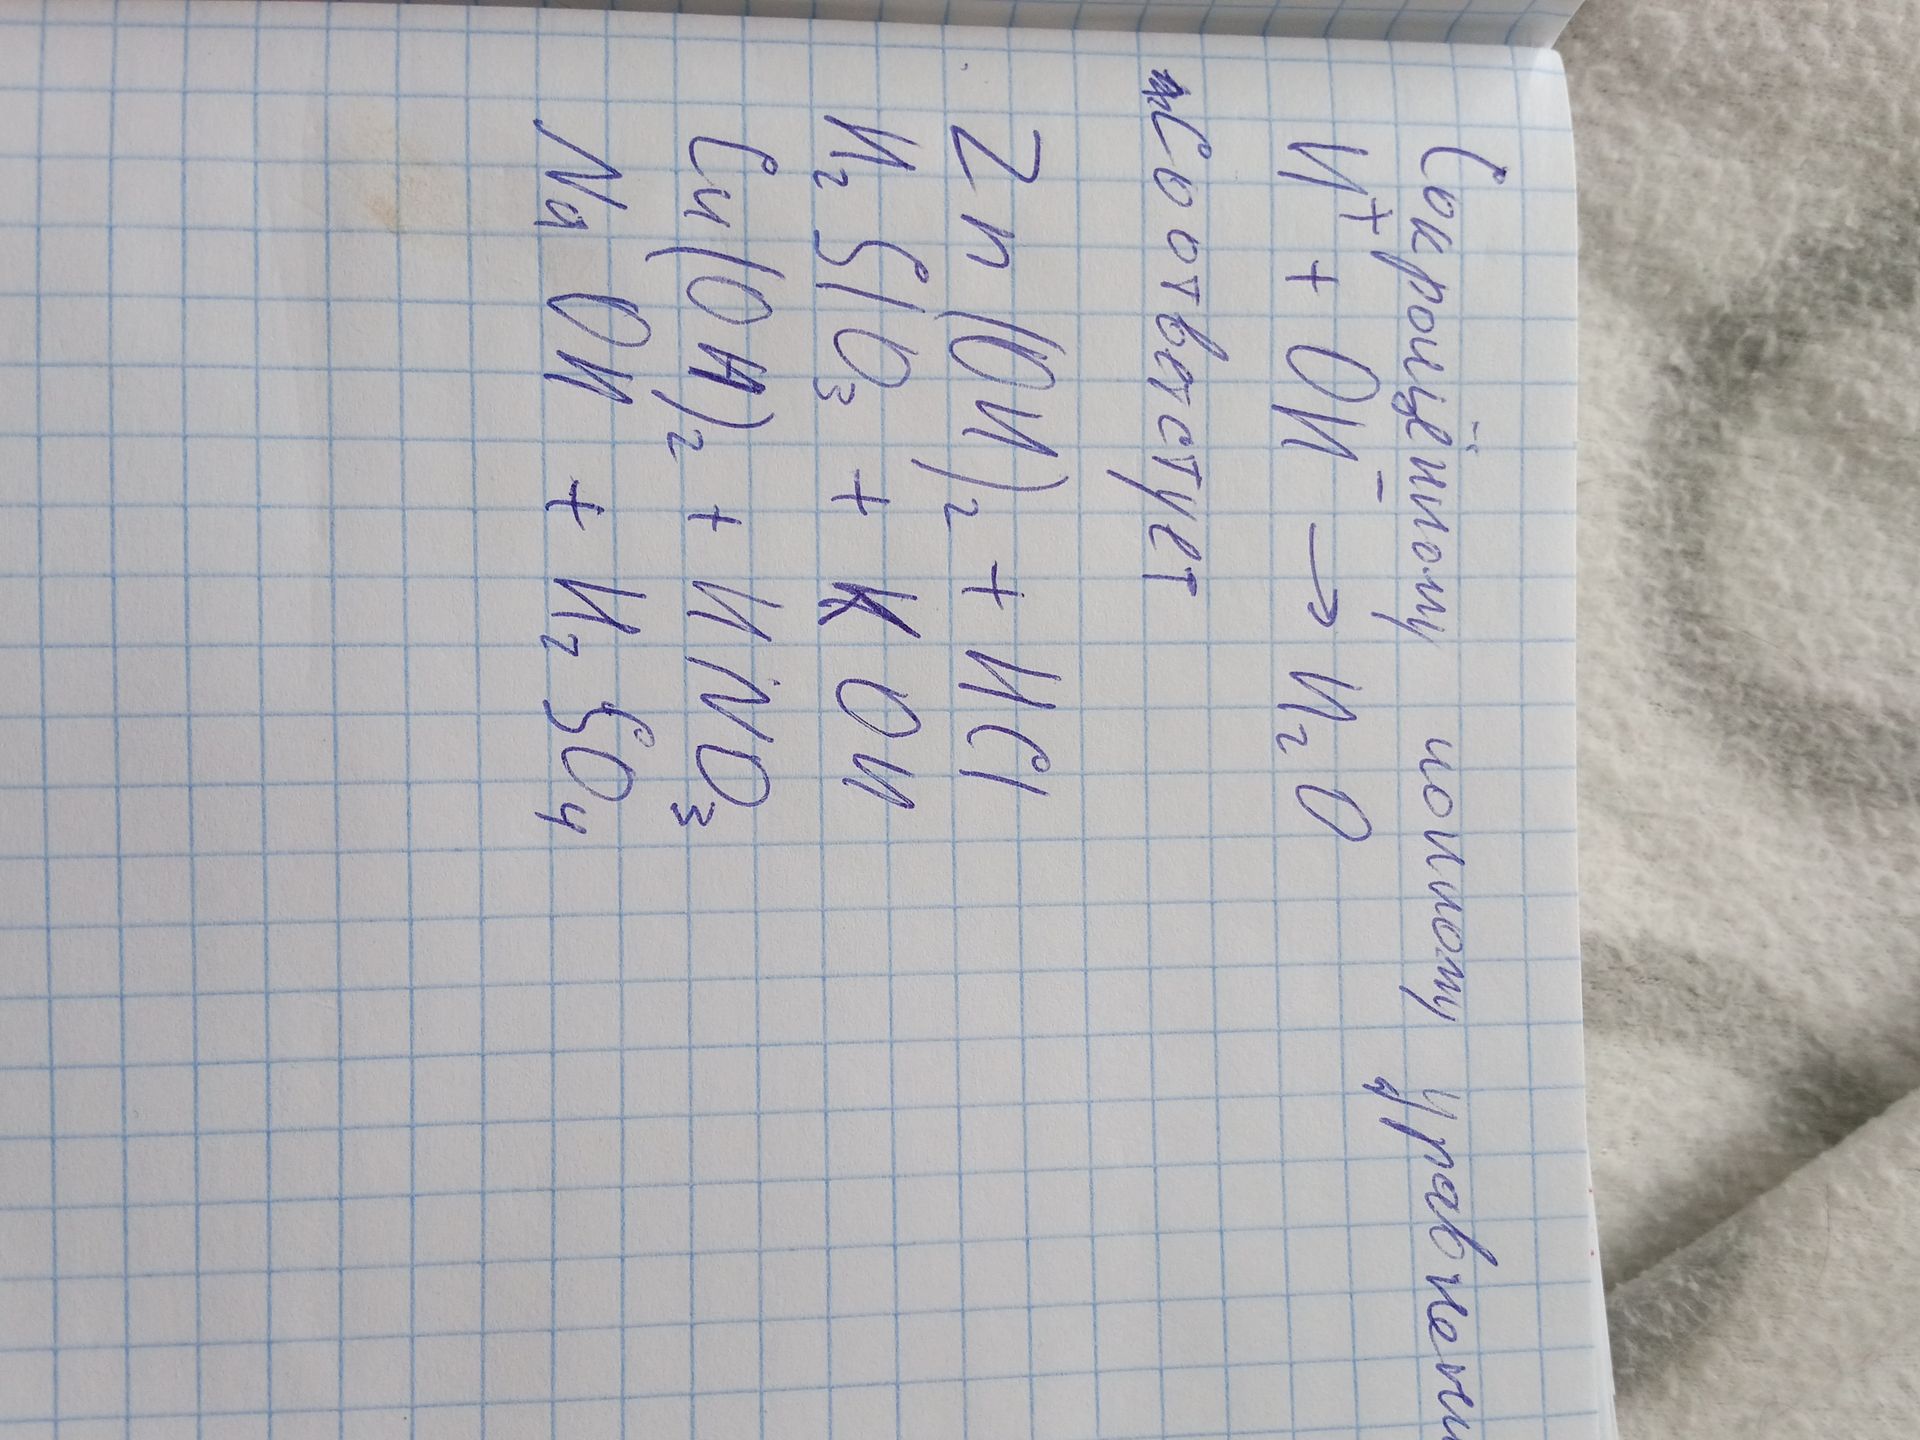 Сокращённому ионному уравнени
H⁺ + OH⁻ → H₂O
Соответстует
Zn(OH)₂ + HCl
H₂SIO₃ + KOH
Cu(OH)₂ + HNO₃
NaOH + H₂SO₄